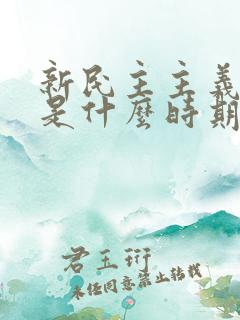 新民主主義
是什麼時期
君玉珩
未经同意禁止转载